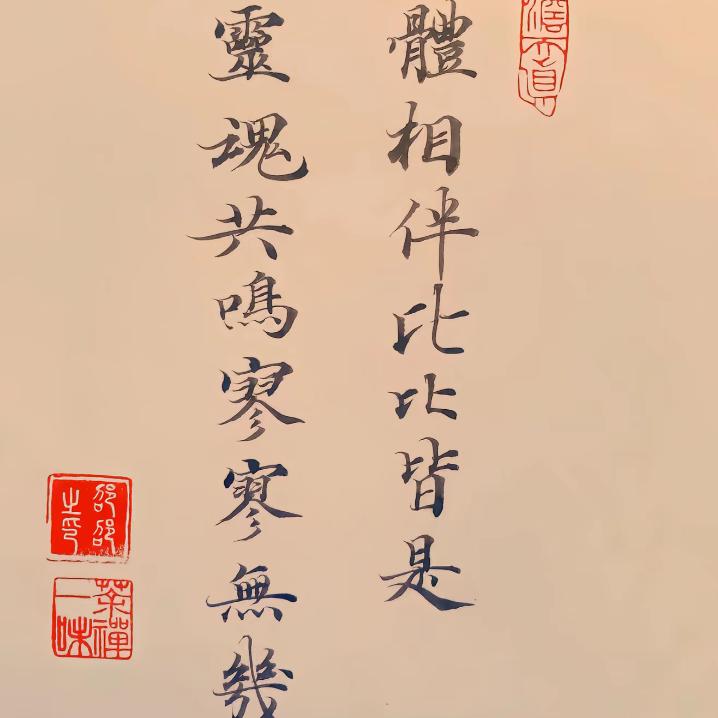 體相伴比比皆是
靈魂共鳴寥寥無幾
邵邵之印
茶禪一味